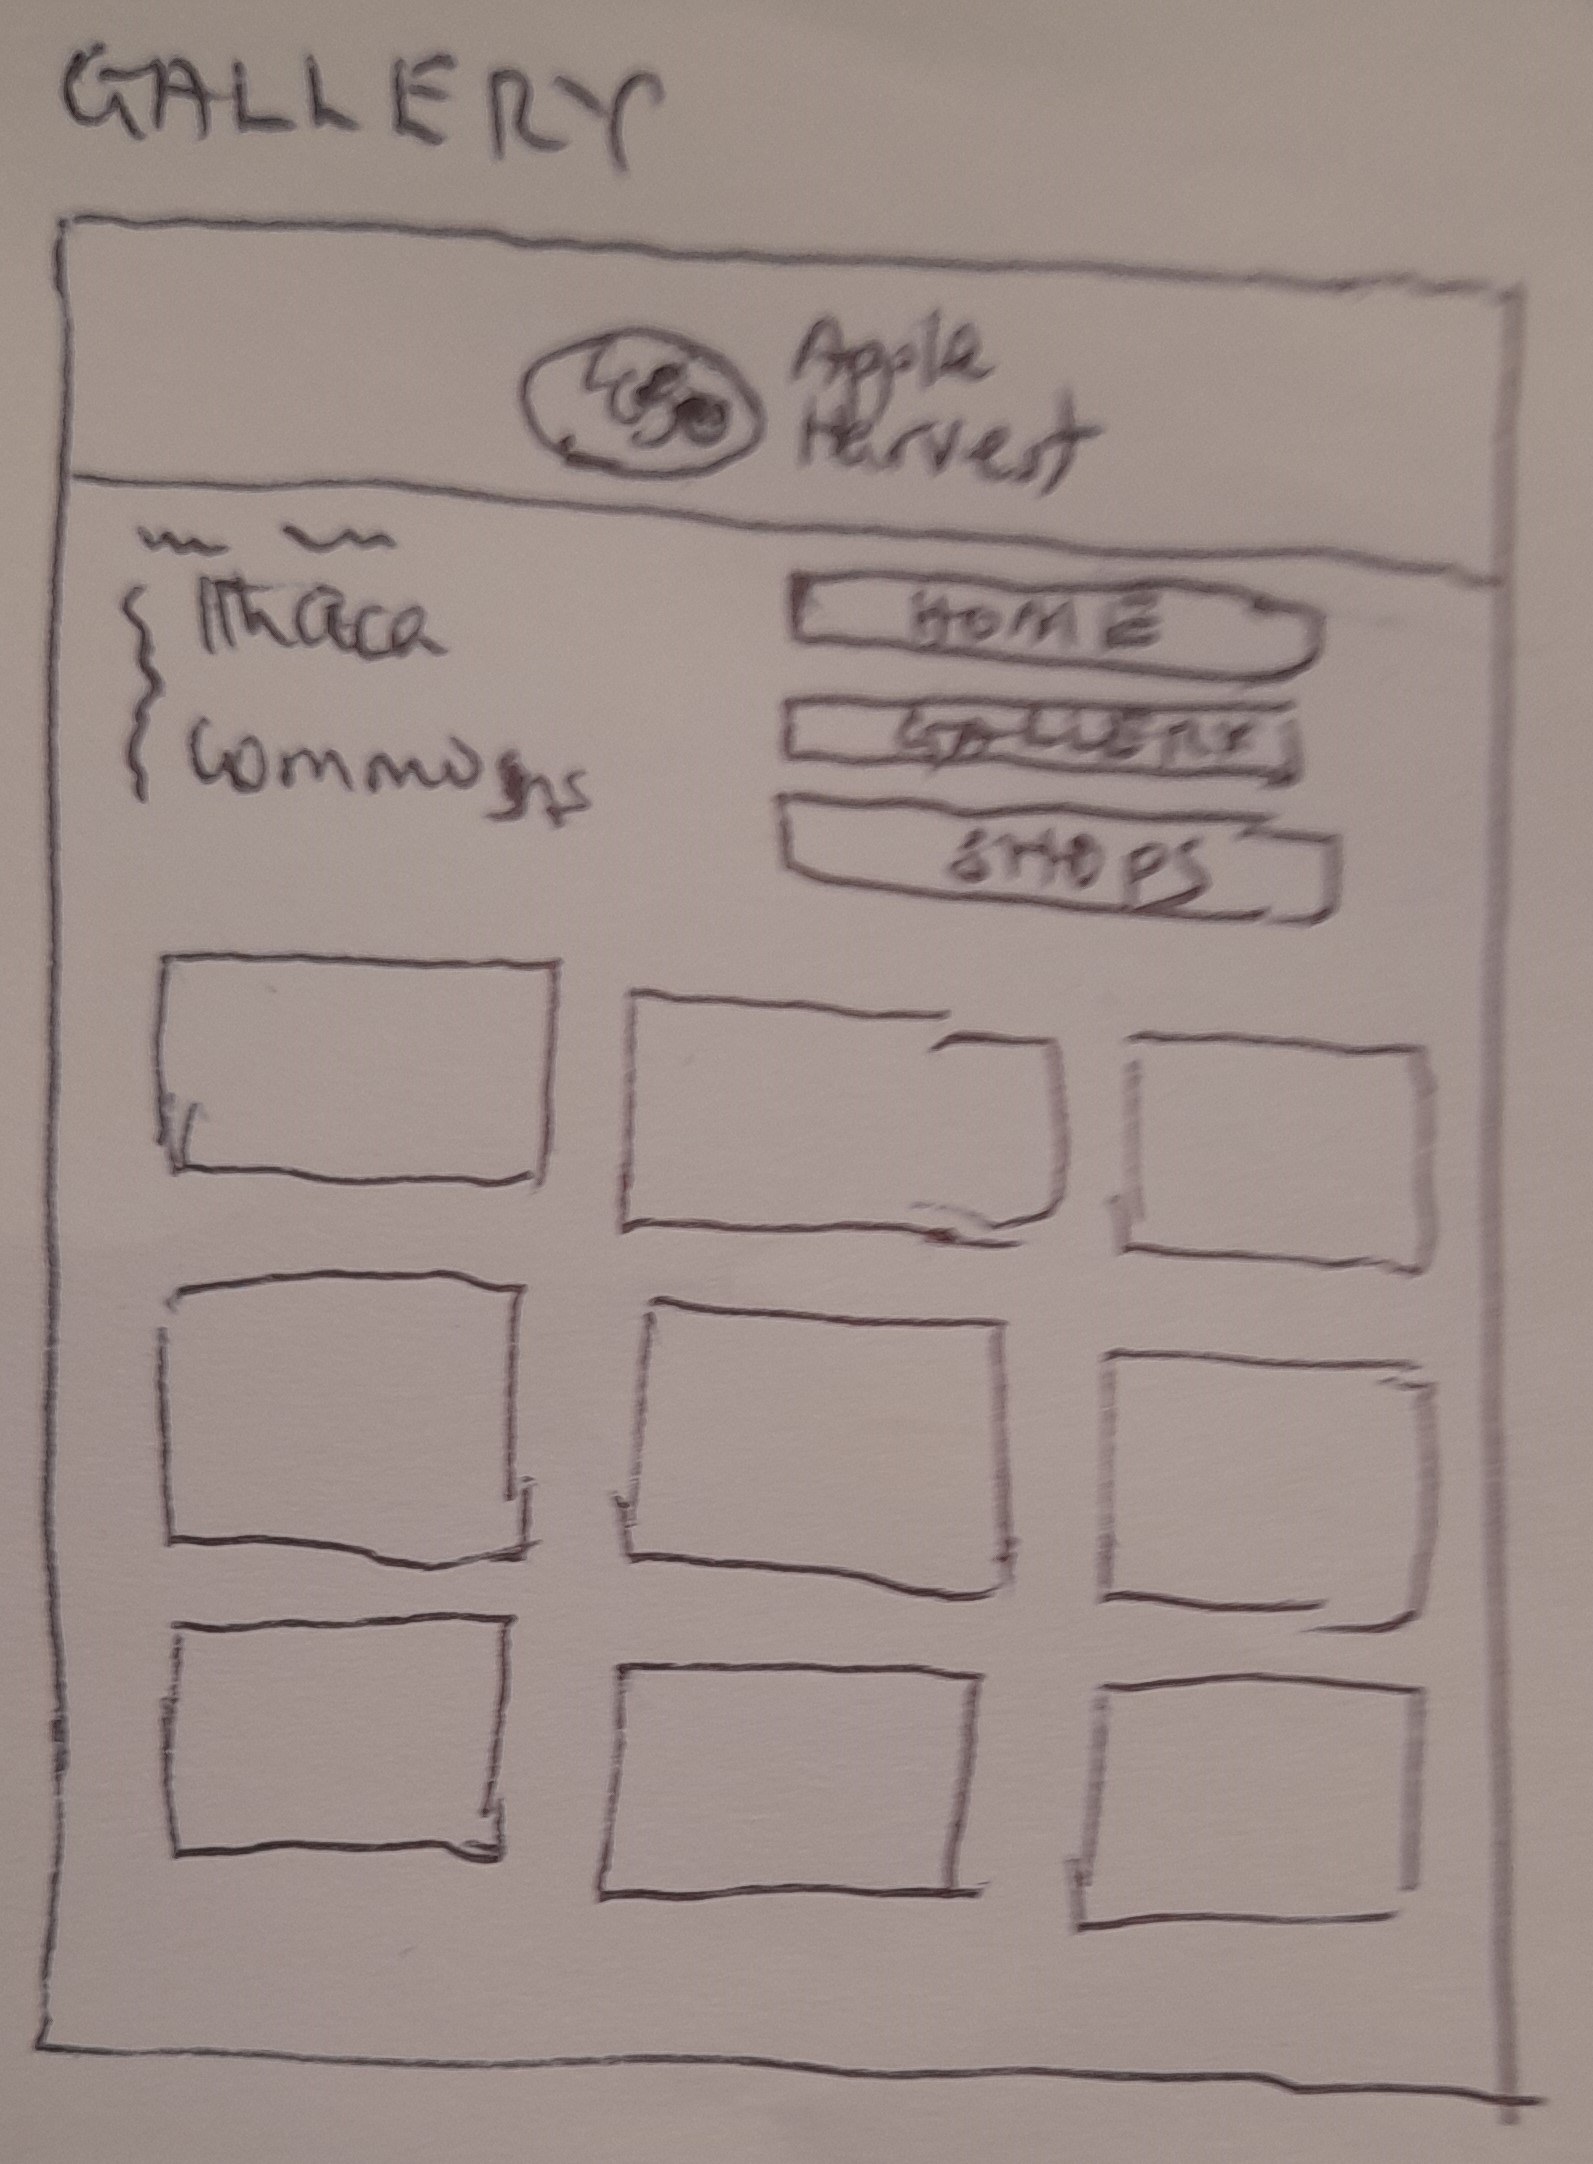 GALLERY
Apple
Harvest
Ithaca
Commons
HOME
GALLERY
SHOPS